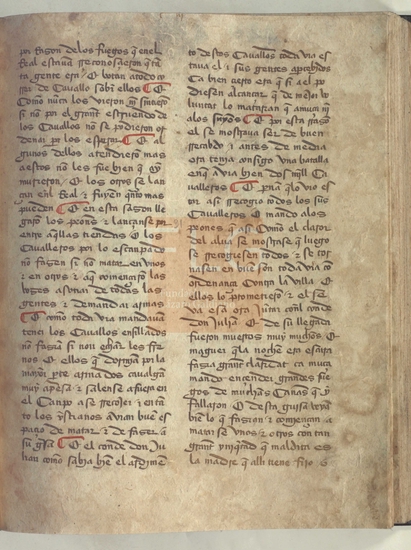 por Razon delos fuegos q̃ en el
Real estauã Reconosçieron q̃ ta
ta gente era ¶ E botan atodo co
rrer de Cauallo sobre ellos ¶ E
Como nũca los vieron nĩ sintierõ
si no por el grant estruendo de
los Cauallos no se pudieron or
denar por los esperar ¶ E al
gunos dellos atendieron mas
a estos no les fue bien q̃ y
murieron / E los otros se lan
çan en el Real & fuyen q̃nto mas
pueden ¶ E en esta sazon lle
garõ los peones & lançanse por
entre aquellas tiendas E los
Caualleros por lo estrupado
no fazen si no matar en vnos
& en otros & aqui comẽçarõ las
bozes a sonar de todas las
gentes & demandar armas
¶ E como toda via mandaua
tener los Cauallos ensillados
no fazian si nõ echar les fre
nos E ellos que dormian por la
mayor parte armados caualgã
muy apriesa & salense a fuera en
el Canpo a se recoger / en ta
to los xpistianos avian bue es
paçio de matar & de fazer a
su guisa ¶ E el conde don Ju
lian como sabia bien el ardimẽ
to destos Caualleros toda via es
taua el & sus gentes aperçebidos
Ca bien çierto era q̃ si a el po
diesen alcançar que de mejor vo
luntat lo matarian q̃ a muça nĩ
alos suyos ¶ E por esta guisa
el se mostraua ser de buen
recabdo & antes de media
ora tenia consigo vna batalla
en que avia bien dos mill Ca
ualleros ¶ E pues que vio es
to asi recogio todos los sus
Caualleros E mando alos
peones que asi Como el claror
del alua se mostrase q̃ luego
se recogiesen todos & se tor
nasen en vue son toda via cõ
ordenança Contra la villa E
ellos lo prometieron & el se
va esa ora Juntar conl conde
don Julia E de su llegada
fueron muertos muy muchos E
maguer que la noche era escura
fazia grant claridat ca muça
mando ençender grandes fue
gos de muchas Canas que y
fallaron E desta guisa veyã
bien lo que fazian & comiençan a
matarse vnos & otros con tan
grant crueldad que maldita es
la madre q̃ alli tiene fijo o